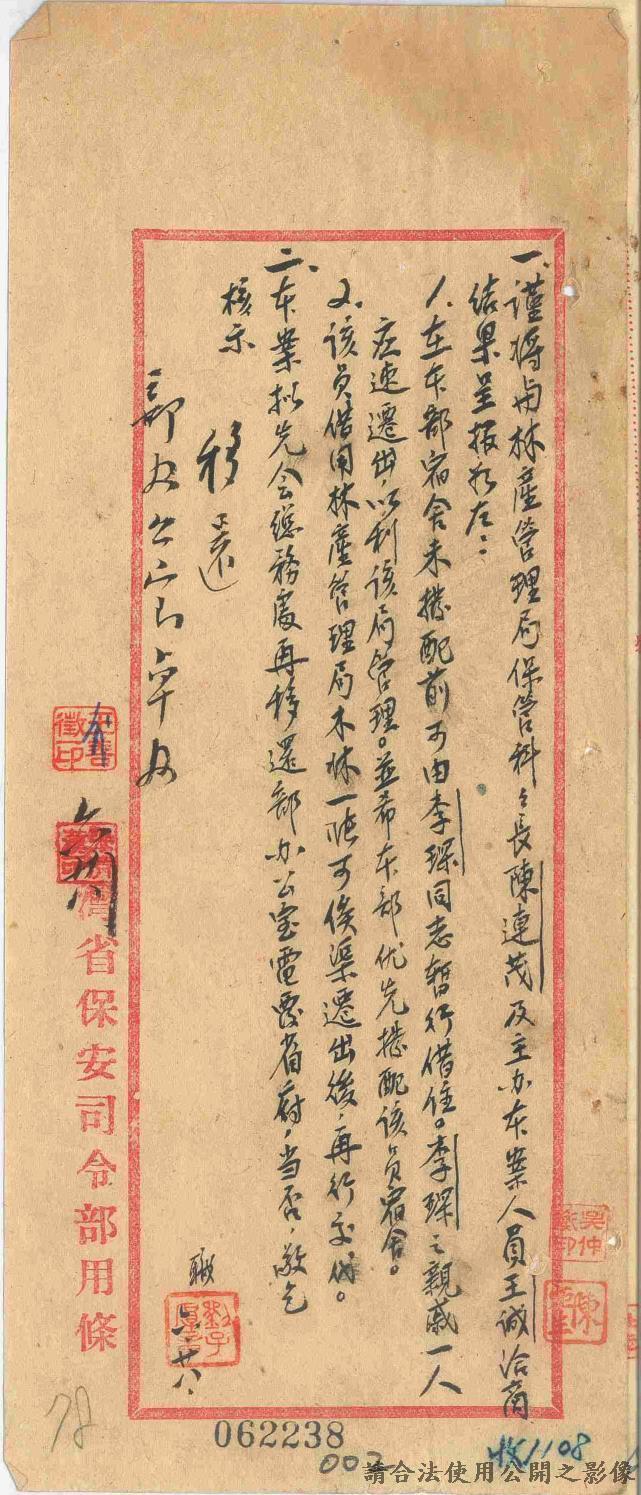 一、謹将与林產管理局保管科々長陳連茂及主办本案人員王誠洽商
結果呈报於左：
1. 在本部宿舍未撥配前可由李琛同志暫行借住。李琛之親戚一人
应速遷出，以利該局管理。並希本部优先撥配該員宿舍。
2. 該員借用林產管理局木床一张可俟渠遷出後，再行交代。
二、本案拟先会總務處再移還部办公室電覆省府，当否，敬乞
核示
移還
部办公室
職
六廿八
台灣省保安司令部用條
78
062238
002
收1108
請合法使用公開之影像